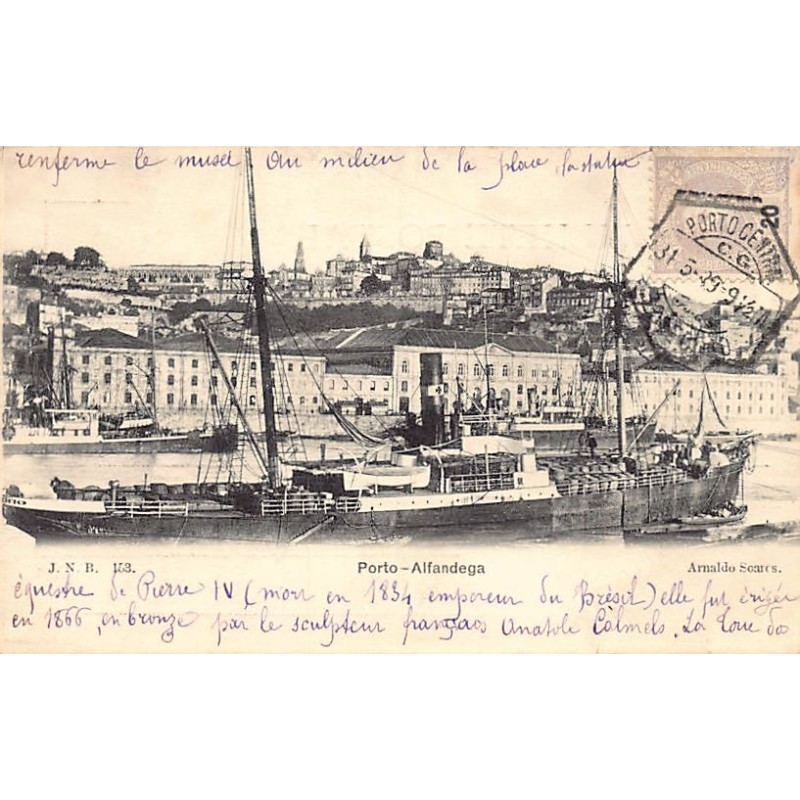 renferme le museé Au milieu de la place, la statue
PORTO CENTRAL
C.G.
20
J. N. B. 153.
Porto - Alfandega
Arnaldo Soares.
équestre de Pierre IV (mort en 1834 empereur du Brésil) elle fut érigée
en 1866, en bronze par le sculpteur français Anatole Calmels. La Tour do